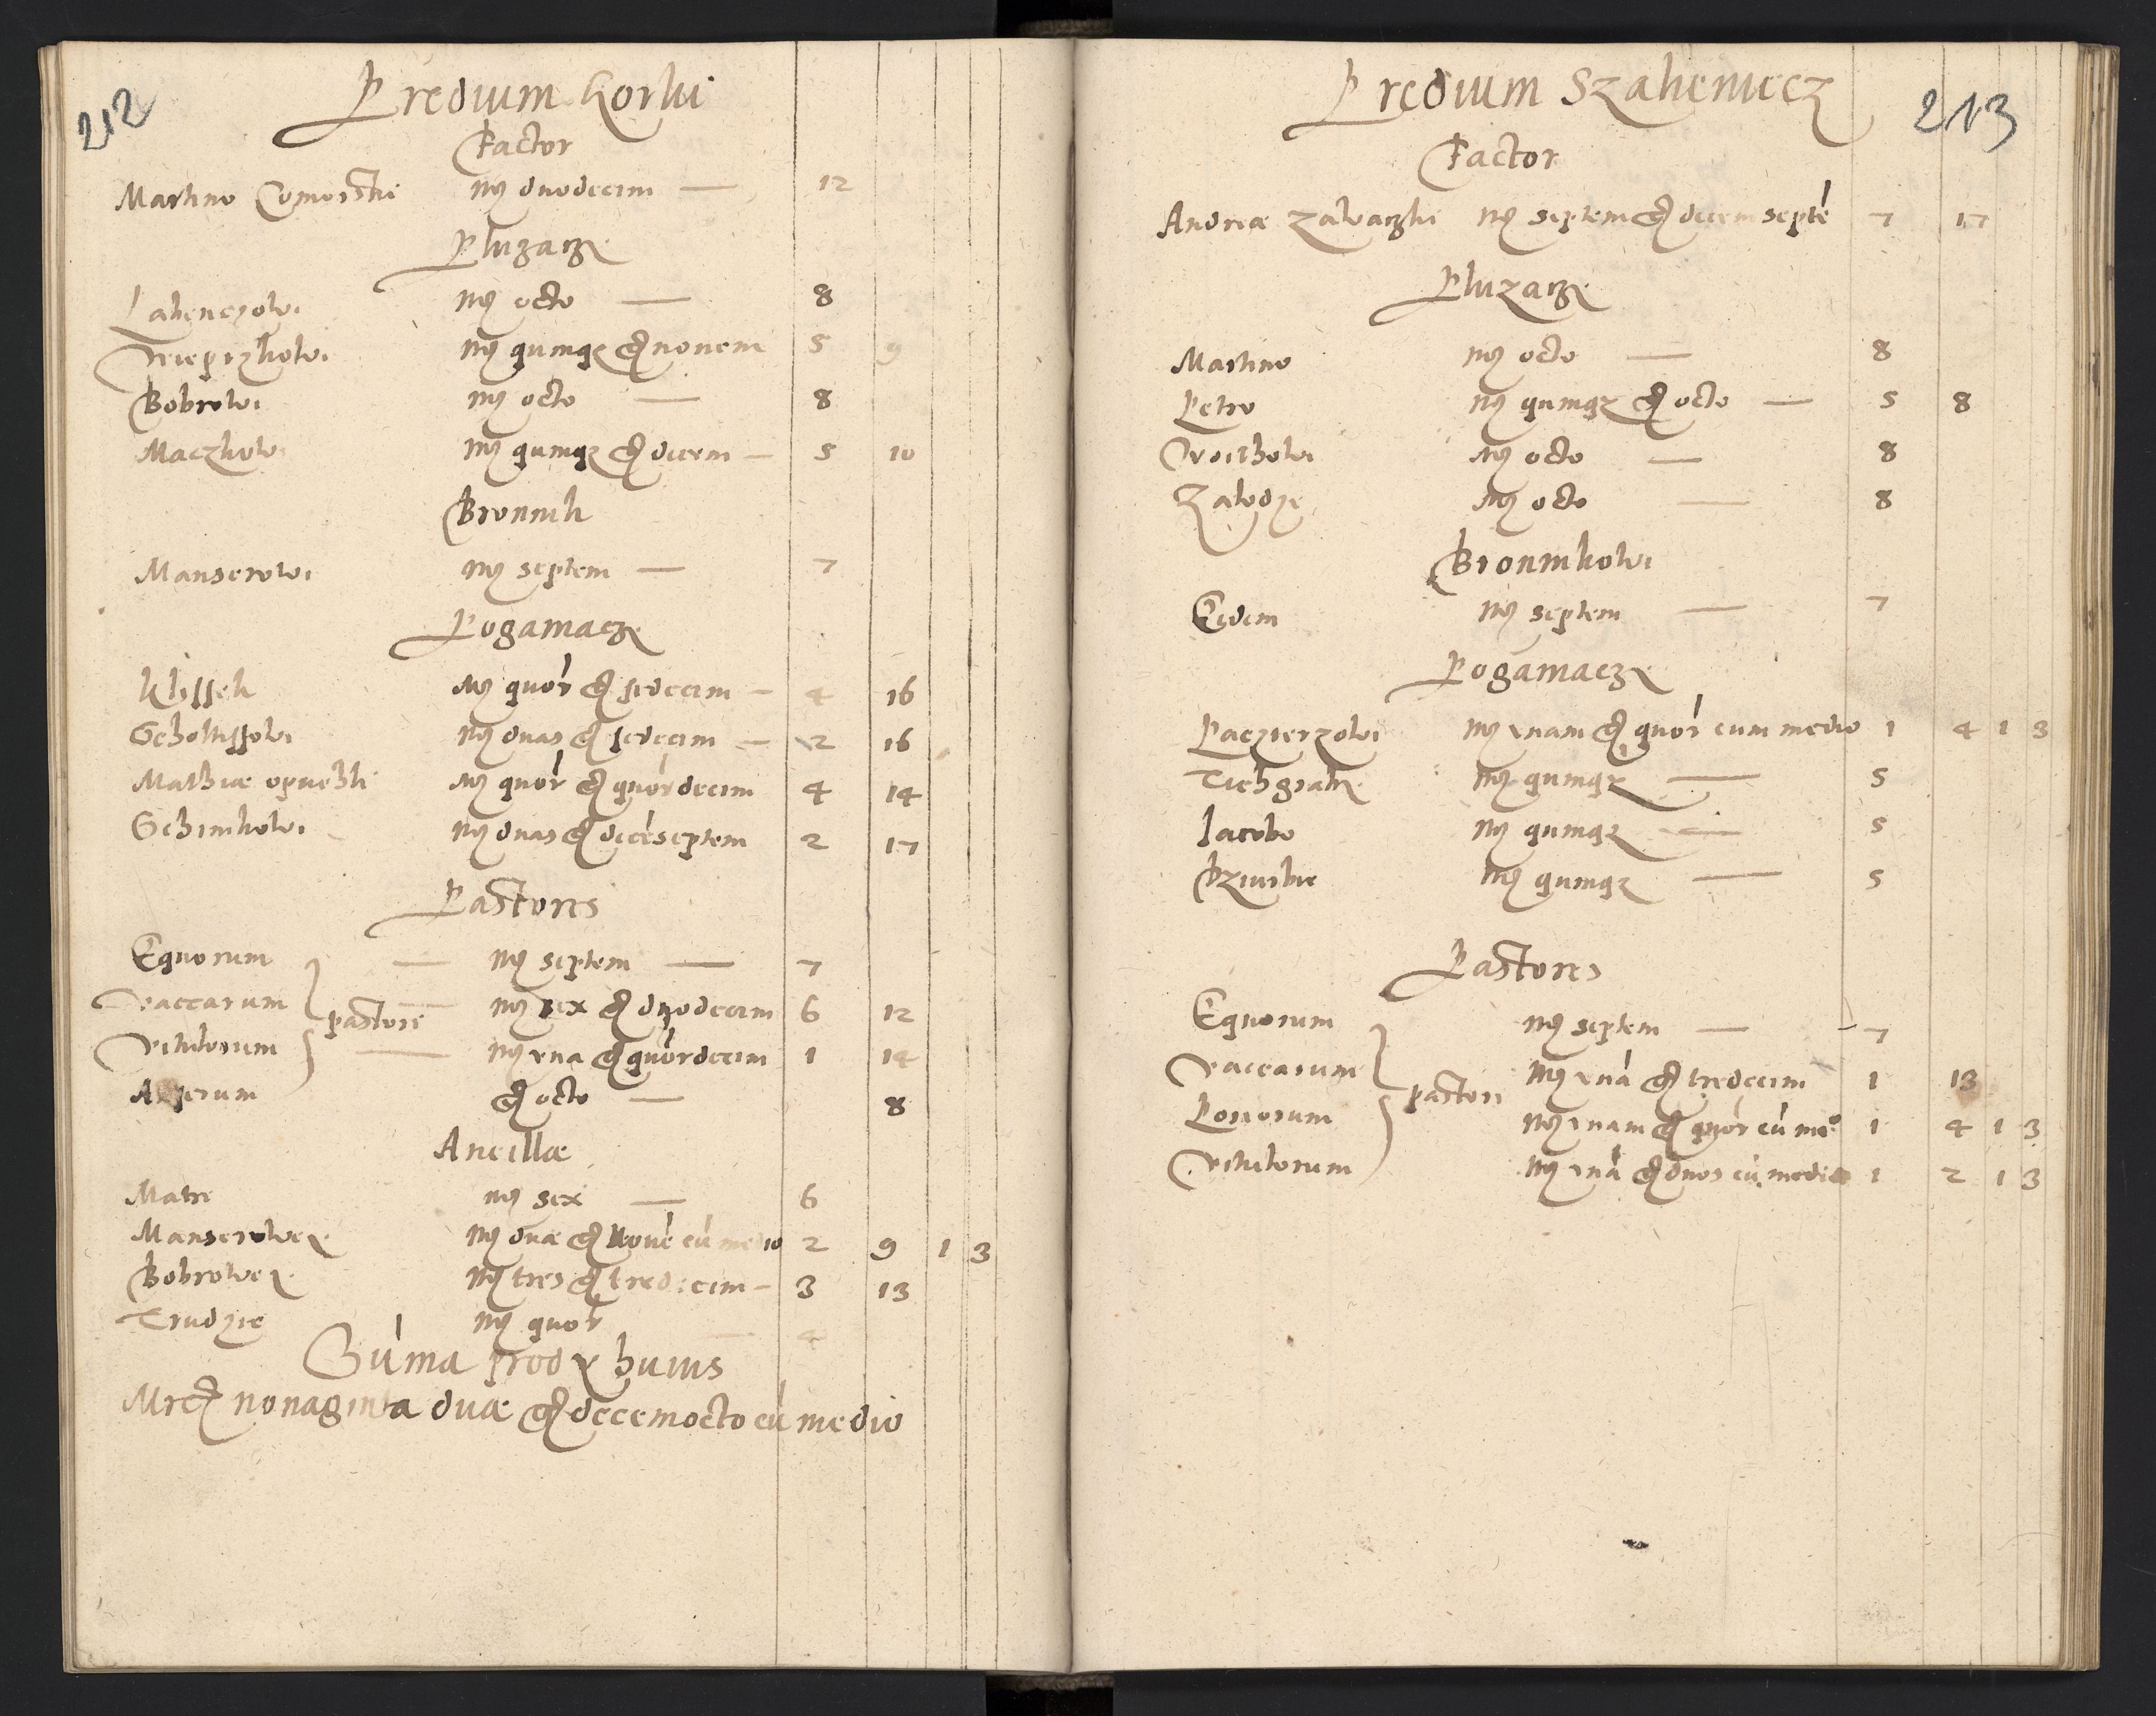 212
Predium Korlui
Factor
Martino Comorski mg duodecim — 12
Pluzacze
Lahenczowi mg octo — 8
Wieprzkowi mg quinqz et nonem 5 9
Bobrowi mg octo — 8
Maczkowi mg quinqz et decem — 5 10
Bronnik
Manserowi mg septem — 7
Pogamacze
Klissek mg quor et sedecim — 4 16
Scholtissowi mg duas et sedecim — 2 16
Mathiæ opuchli mg quor et quordecim 4 14
Schimkowi mg duas et decéseptem 2 17
Pastores
Equorum — mg septem — 7
Vaccarum pastori mg sex et duodecim 6 12
Vitulorum — mg vna et quordecim 1 14
Anserum et octo — 8
Ancillæ
Matre mg sex — 6
Manserowey mg duæ et noué cú medio 2 9 1 3
Bobrowey mg tres et tredecim — 3 13
Trudzie mg quor 4
Súma prod huius
Mrc nonaginta duæ et decemocto cú medio
213
Predium Szahenicz
Factor
Andreæ Zawaczki mg septem et decem septé 7 17
Pluzacze
Martino mg octo — 8
Petro mg quinqz et octo — 5 8
Woithowi mg octo — 8
Zawodze mg octo — 8
Bronnikowi
Eidem mg septem — 7
Pogamacze
Paczierzowi mg vnam et quor cum medio 1 4 1 3
Tichgratze mg quinqz — 5
Jacobo mg quinqz — 5
Brziuchie mg quinqz — 5
Pastores
Equorum mg septem — 7
Vaccarum mg vná et tredecim 1 13
pastori
Porcorum mg vnam et quor cú meo 1 4 1 3
Vitulorum mg vná et duos cú medio 1 2 1 3